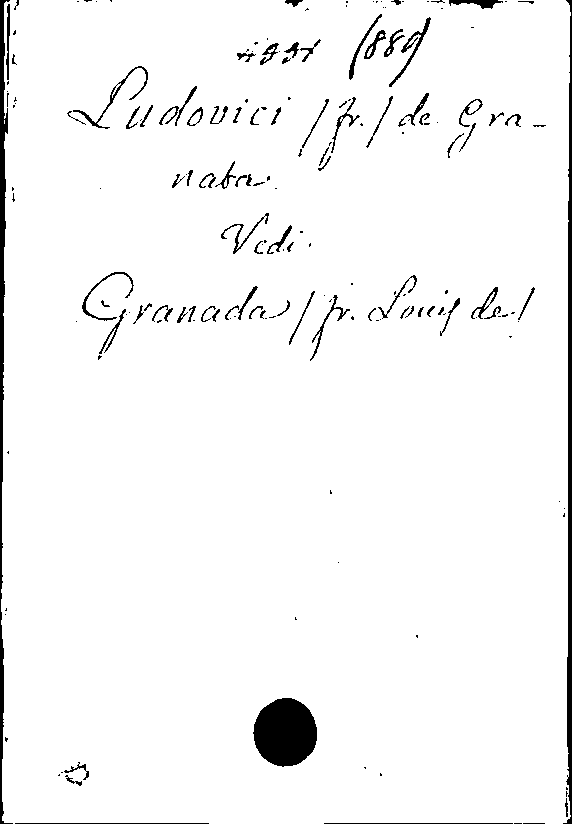 (889)
Ludovici / fr. / de Gra-
nata.
Vedi.
Granada / fr. Louis de /